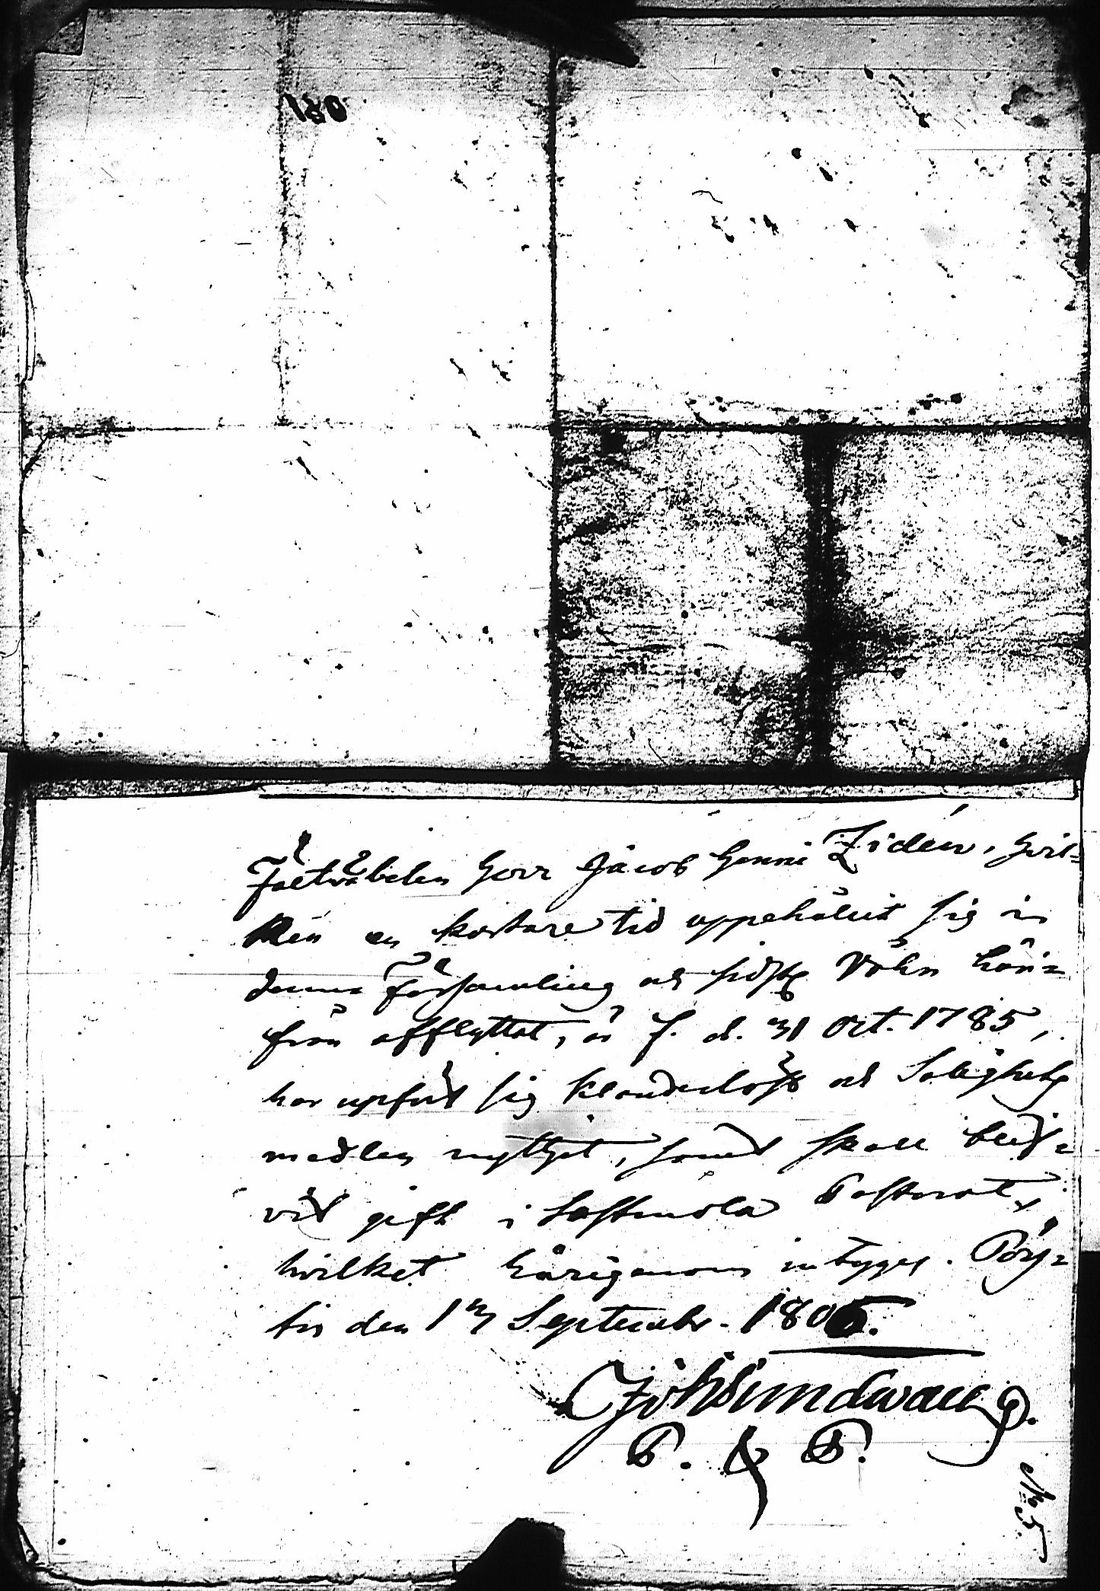 180
Fältväbelen Herr Jacob Henric Zidén, hvil=
ken en kortare tid uppehållit sig i
denna Församling och sidst Våhn här=
från afflyttat, är f. d. 31 Oct. 1785,
har upfört sig klanderlöst och Salighets
medlen nyttjat, samt skall blif=
vit gift i Sastmola Pastorat,
hvilket härigenom intygas. Pöy=
tis den 1 September. 1806.
Joh Sundwall
P. & P.
No 5.